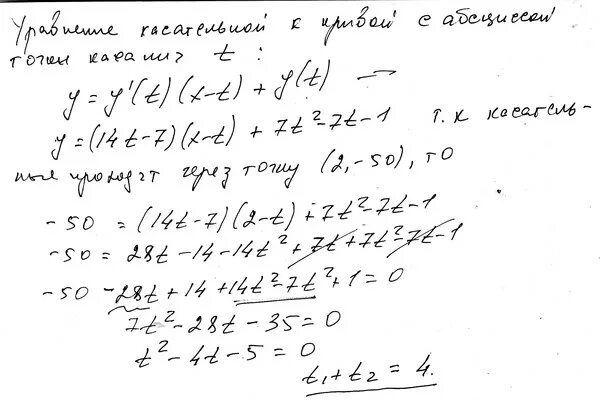 Уравнение касательной к кривой с абсциссой
точки касания t :
y = y'(t)(x-t) + y(t) —
y = (14t-7)(x-t) + 7t²-7t-1 т.к касатель-
ные проходят через точку (2,-50), то
-50 = (14t-7)(2-t) + 7t²-7t-1
-50 = 28t - 14 - 14t² + 7t + 7t² - 7t - 1
-50 - 28t + 14 + 14t² - 7t² + 1 = 0
7t² - 28t - 35 = 0
t² - 4t - 5 = 0
t₁ + t₂ = 4.